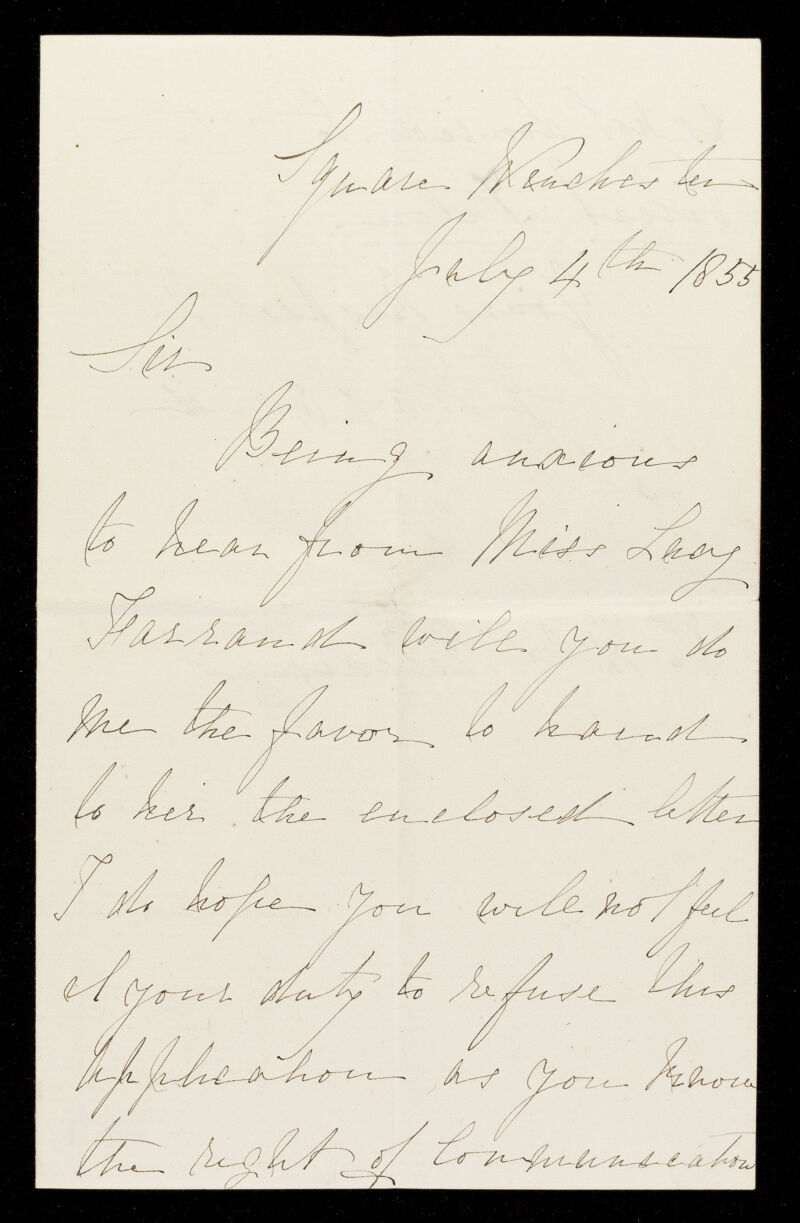 Square Winchester
July 4th 1855
Sir
Being anxious
to hear from Miss Lucy
Farrand will you do
me the favor to hand
to her the enclosed letter
I do hope you will not feel
it your duty to refuse this
application as you know
the right of Communication